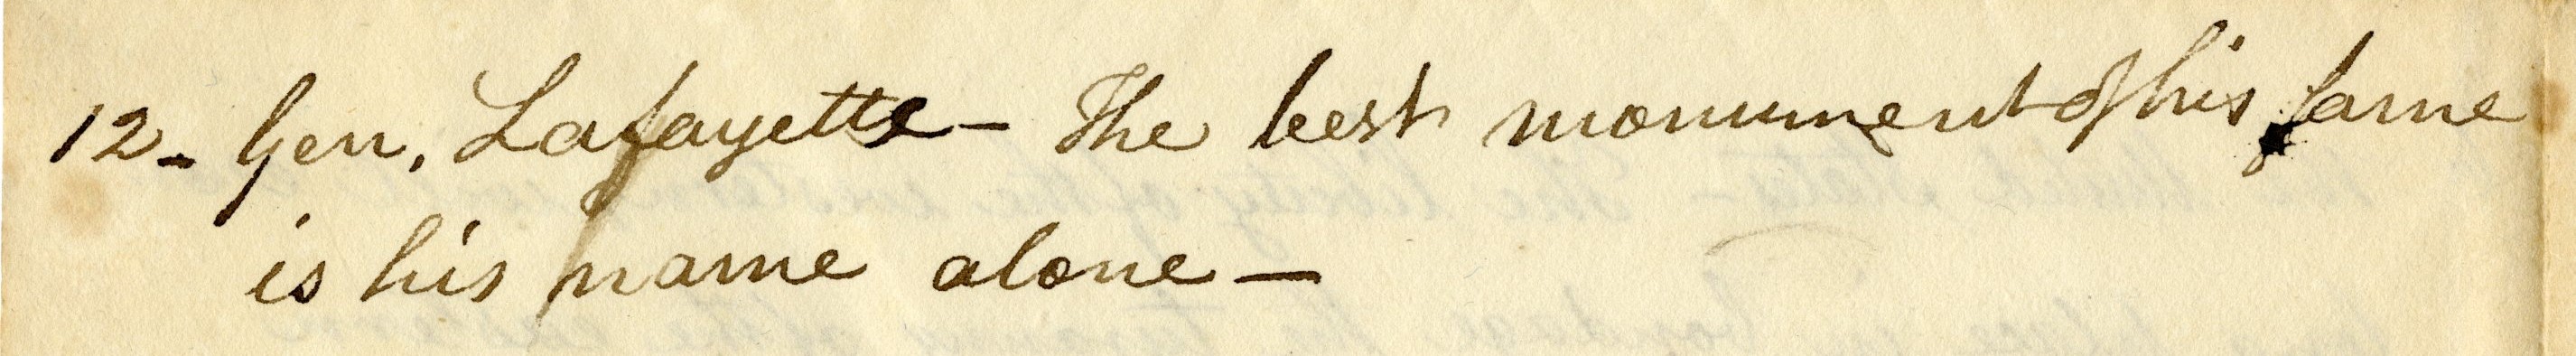 12- Gen. Lafayette - The best monument of his fame
is his name alone -